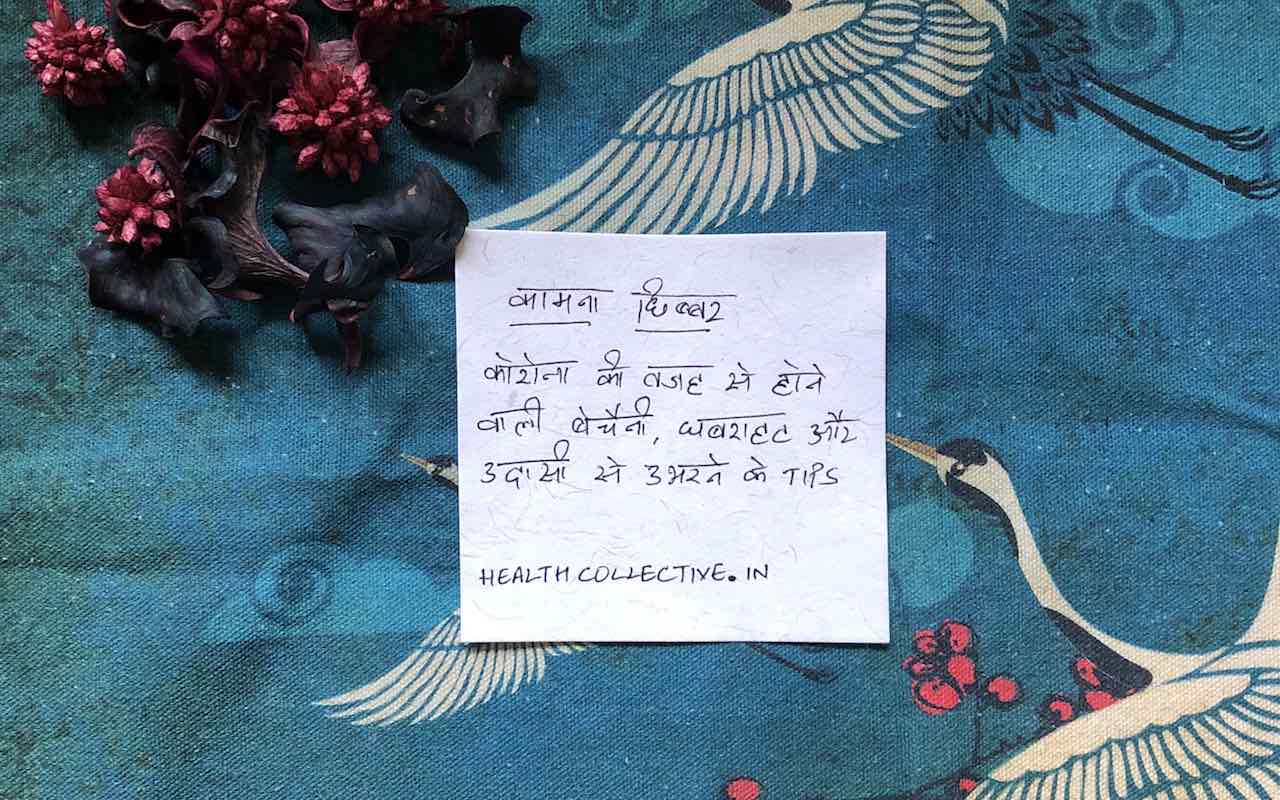 कामना छिब्बर
कोरोना की वजह से होने
वाली बेचैनी, घबराहट और
उदासी से उभरने के TIPS
HEALTHCOLLECTIVE.IN